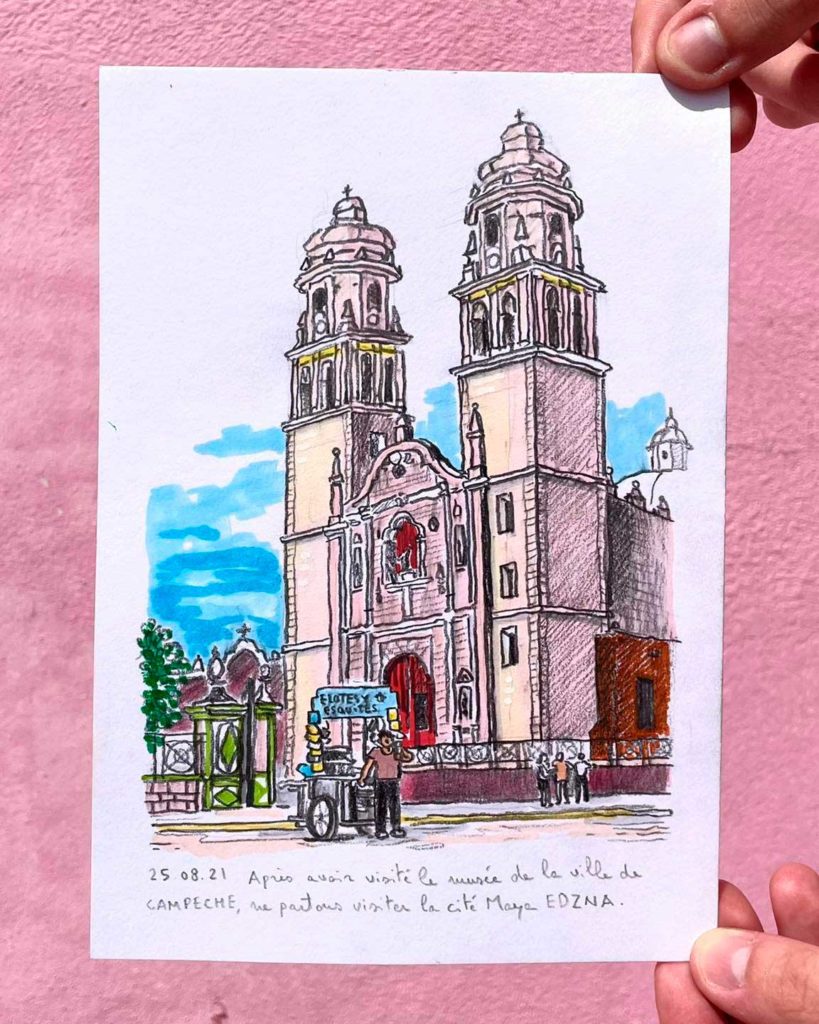 ELOTES Y
esquites
25 08.21 Après avoir visité le musée de la ville de
CAMPECHE, ne partons visiter la cité Maya EDZNA.